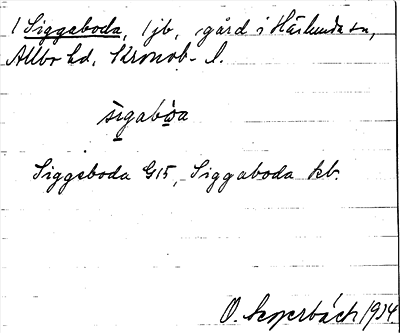 1 Siggeboda, 1 jb, gård i Härlunda sn,
Allbo hd, Kronob. l.
sigabωa
Siggeboda G15, Siggaboda kb.
O. 1934.